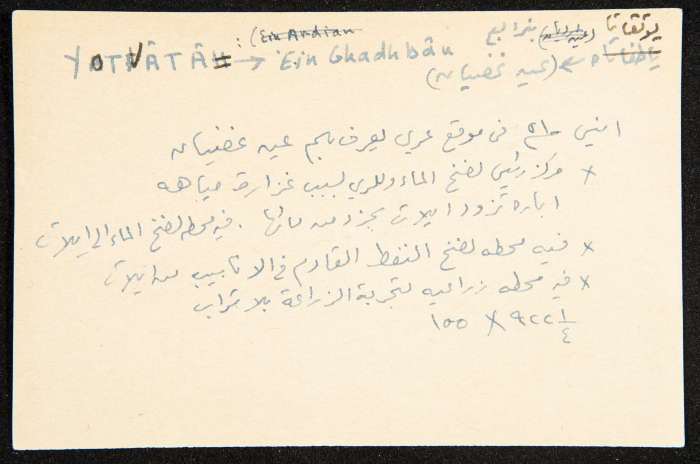 YOTVATAH : (Ein Ardian) → 'Ein Ghadhbân بئر السبع يوتڤاتا
ياطفاتاه ← (عين غضيان)
انشئ في موقع عربي يعرف باسم عين غضيان
× مركز رئيسي لضخ الماء وللري لسبب غزارة مياهه
اباره تزود ايلات بجزء من مائها . فيه محطه لضخ الماء الى ايلات
× فيه محطه لضخ النفط القادم في الانابيب من ايلات
× فيه محطه زراعيه لتجربة الزراعة بلا تراب
١٥٥ × ٩٢٢ ١/٤